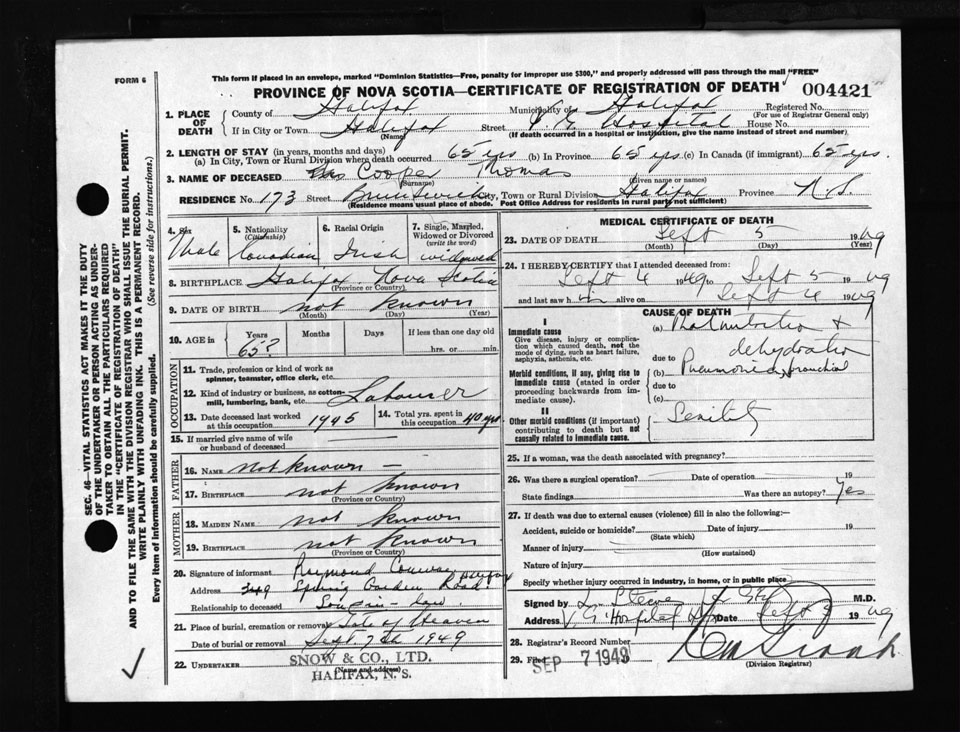 FORM 6
This form if placed in an envelope, marked "Dominion Statistics—Free, penalty for improper use $300," and properly addressed will pass through the mail "FREE"
PROVINCE OF NOVA SCOTIA—CERTIFICATE OF REGISTRATION OF DEATH 004421
SEC. 46—VITAL STATISTICS ACT MAKES IT THE DUTY
OF THE UNDERTAKER OR PERSON ACTING AS UNDER-
TAKER TO OBTAIN ALL THE PARTICULARS REQUIRED
IN THE "CERTIFICATE OF REGISTRATION OF DEATH"
AND TO FILE THE SAME WITH THE DIVISION REGISTRAR WHO SHALL ISSUE THE BURIAL PERMIT.
WRITE PLAINLY WITH UNFADING INK. THIS IS A PERMANENT RECORD.
Every item of information should be carefully supplied. (See reverse side for instructions.)
1. PLACE OF DEATH
County of Halifax Municipality of Halifax Registered No.
(For use of Registrar General only)
If in City or Town Halifax Street V. G. Hospital House No.
(Name) (If death occurred in a hospital or institution, give the name instead of street and number)
2. LENGTH OF STAY (in years, months and days)
(a) In City, Town or Rural Division where death occurred 65 yrs (b) In Province 65 yrs (c) In Canada (if immigrant) 65 yrs.
3. NAME OF DECEASED Cooper Thomas
(Surname) (Given name or names)
RESIDENCE No. 173 Street Brunswick City, Town or Rural Division Halifax Province N.S.
(Residence means usual place of abode. Post Office Address for residents in rural parts not sufficient)
4. Sex
Male
5. Nationality
(Citizenship)
Canadian
6. Racial Origin
Irish
7. Single, Married,
Widowed or Divorced
(write the word)
widowed
8. BIRTHPLACE Halifax Nova Scotia
(Province or Country)
9. DATE OF BIRTH not known
(Month) (Day) (Year)
10. AGE in
Years Months Days If less than one day old
65? hrs. or min.
OCCUPATION
11. Trade, profession or kind of work as
spinner, teamster, office clerk, etc.
12. Kind of industry or business, as cotton-
mill, lumbering, bank, etc. Labourer
13. Date deceased last worked
at this occupation 1945
14. Total yrs. spent in
this occupation 40 yrs
15. If married give name of wife
or husband of deceased
FATHER
16. NAME not known —
17. BIRTHPLACE not known
(Province or Country)
MOTHER
18. MAIDEN NAME not known
19. BIRTHPLACE not known
(Province or Country)
20. Signature of informant Raymond Conway
Address 349 Spring Garden Road Halifax
Relationship to deceased Son-in-law
21. Place of burial, cremation or removal Gate of Heaven
Date of burial or removal Sept. 7th 1949
22. UNDERTAKER SNOW & CO., LTD.
(Name and address)
HALIFAX, N. S.
MEDICAL CERTIFICATE OF DEATH
23. DATE OF DEATH Sept 5 1949
(Month) (Day) (Year)
24. I HEREBY CERTIFY that I attended deceased from:
Sept 4 1949 to Sept 5 1949
and last saw him alive on Sept 4 1949
CAUSE OF DEATH
I
Immediate cause
Give disease, injury or complica-
tion which caused death, not the
mode of dying, such as heart failure,
asphyxia, asthenia, etc.
(a) Malnutrition + dehydration
due to
Morbid conditions, if any, giving rise to
immediate cause (stated in order
proceeding backwards from im-
mediate cause).
(b) Pneumonia, bronchial
due to
(c)
II
Other morbid conditions (if important)
contributing to death but not
causally related to immediate cause.
Senility
25. If a woman, was the death associated with pregnancy?
26. Was there a surgical operation? Date of operation 19
State findings Was there an autopsy? Yes
27. If death was due to external causes (violence) fill in also the following:—
Accident, suicide or homicide? Date of injury 19
(State which)
Manner of injury
(How sustained)
Nature of injury
Specify whether injury occurred in industry, in home, or in public place
Signed by M.D.
Address V. G. Hospital Date Sept 1949
28. Registrar's Record Number
29. Filed SEP 7 1949
(Division Registrar)